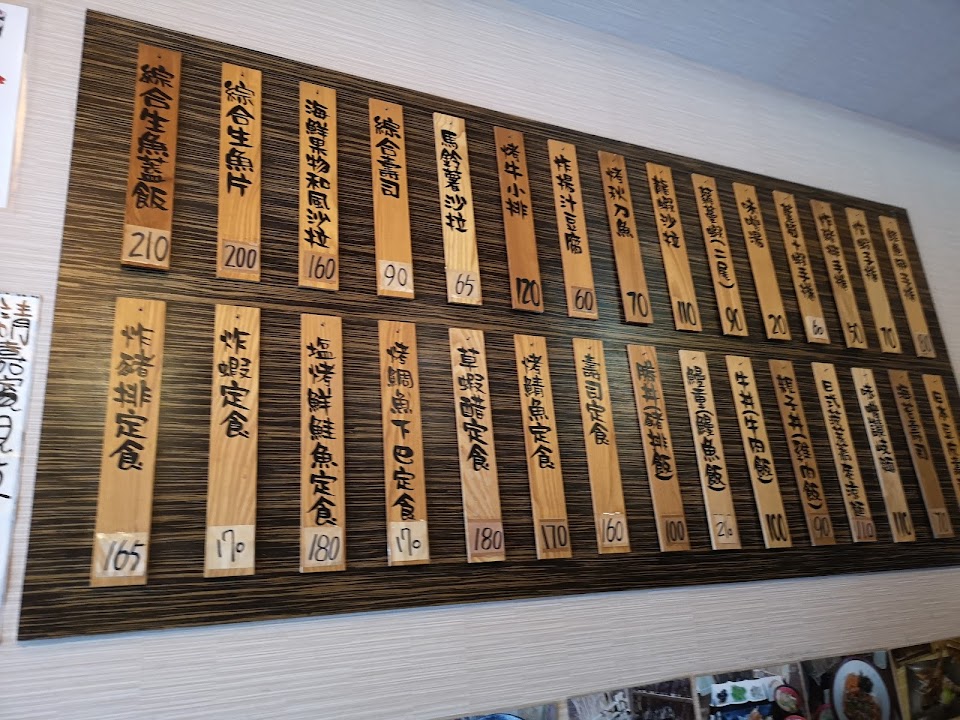 綜合生魚蓋飯 210
綜合生魚片 200
海鮮果物和風沙拉 160
綜合壽司 90
馬鈴薯沙拉 65
烤牛小排 120
炸揚汁豆腐 60
烤秋刀魚 70
龍蝦沙拉 110
蘿蔓蝦(二尾) 90
味噌湯 20
蘆筍+蝦手捲 60
炸蝦手捲 70
80
炸豬排定食 165
炸蝦定食 170
塩烤鮮鮭魚定食 180
烤鯛魚下巴定食 170
草蝦醋定食 180
烤鯖魚定食 170
壽司定食 160
勝丼(豬排飯) 100
鰻重(鰻魚飯)
牛丼(牛肉飯) 100
親子丼(雞肉飯) 90
110
110
70
請嘉賓